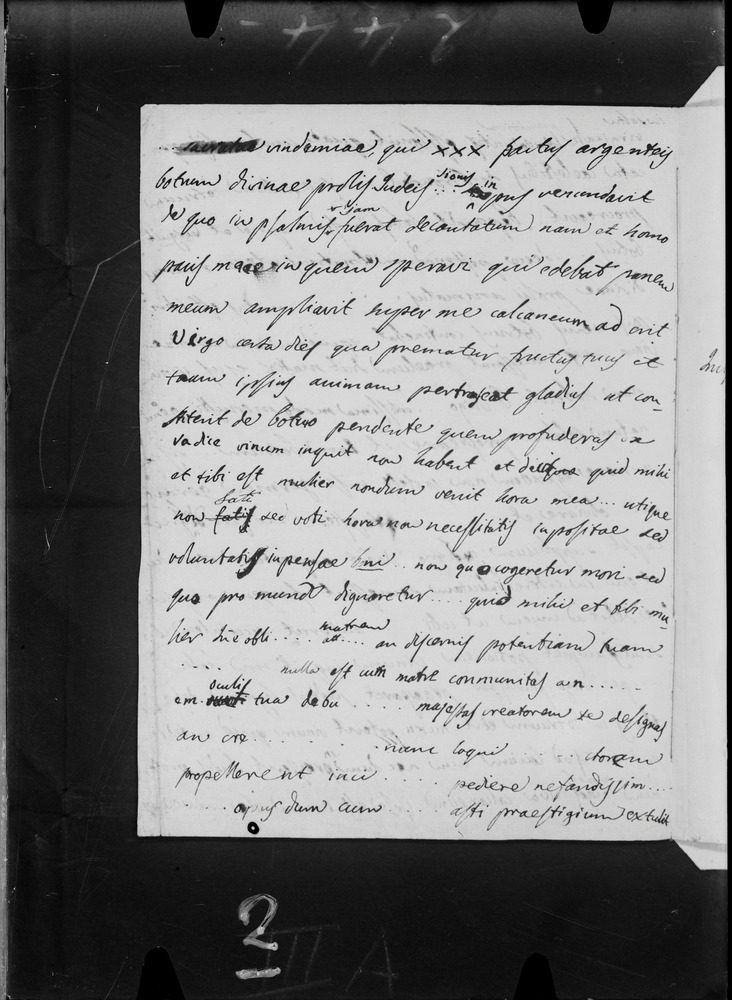 vindemiae, qui xxx pactus argenteis
botrum divinae prolis Judeis ... in pus venundavit
de quo in psalmis jam fuerat decantatum nam et homo
pacis meae in quem speravi qui edebat panem
meum ampliavit super me calcaneum ad erit
Virgo certa dies qua prematur fructus tuus et
tuam ipsius animam pertraseat gladius ut con-
stiterit de botro pendente quem profuderas e
radice vinum inquit non habent et quid mihi
et tibi est mulier nondum venit hora mea ... utique
non fati sed voti hora non necessitatis inpositae sed
voluntatis inpensae bni .. non quo cogeretur mori sed
qua pro mundi dignaretur .... quid mihi et tibi mu-
lier hic obli .... matrem .... an discernis potentiam tuam
.... nulla est cum matre communitas an ......
em oculis tua debu ..... majestas creatorem te designas
an cre ........ nunc loqui ..... ctoram
propellerent inci ..... pediere nefandissim ....
..... opus dum cum .... asti praestigium extulit
2
A III